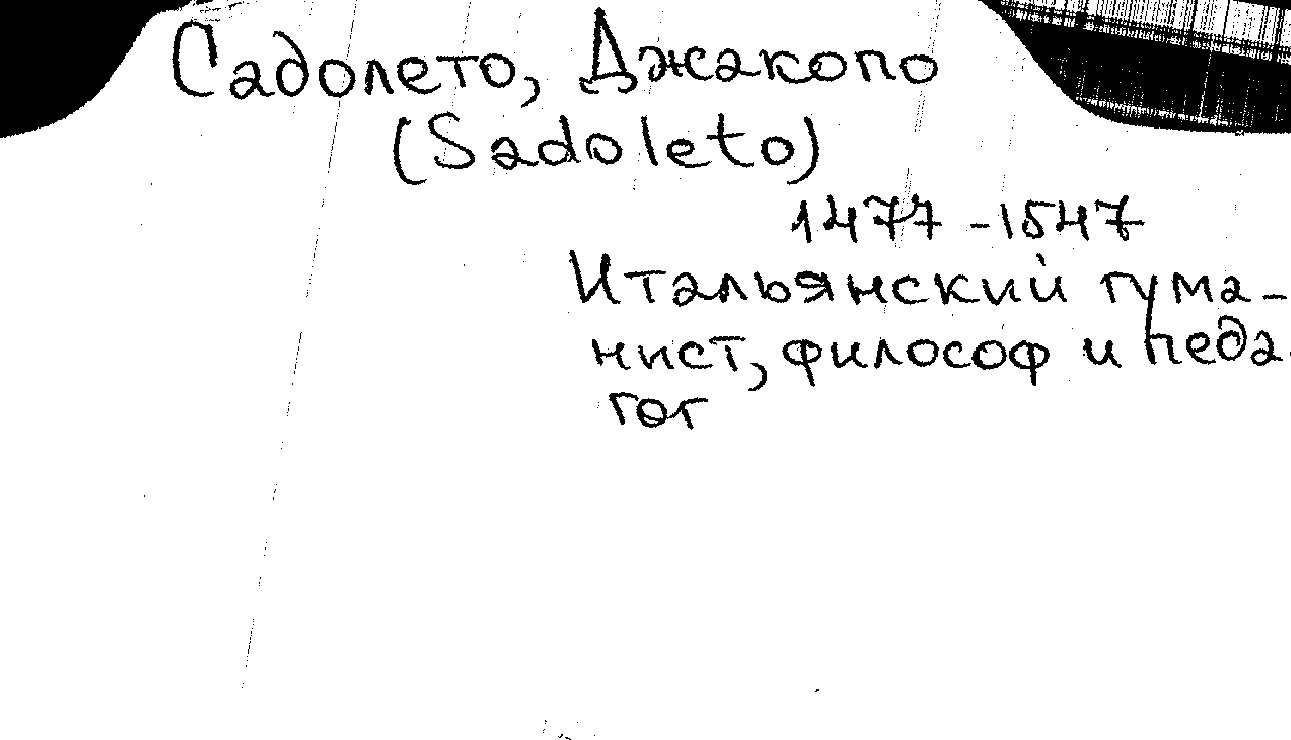 Садолето, Джакопо
(Sadoleto)
1477-1547
Итальянский гума-
нист, философ и педа-
гог